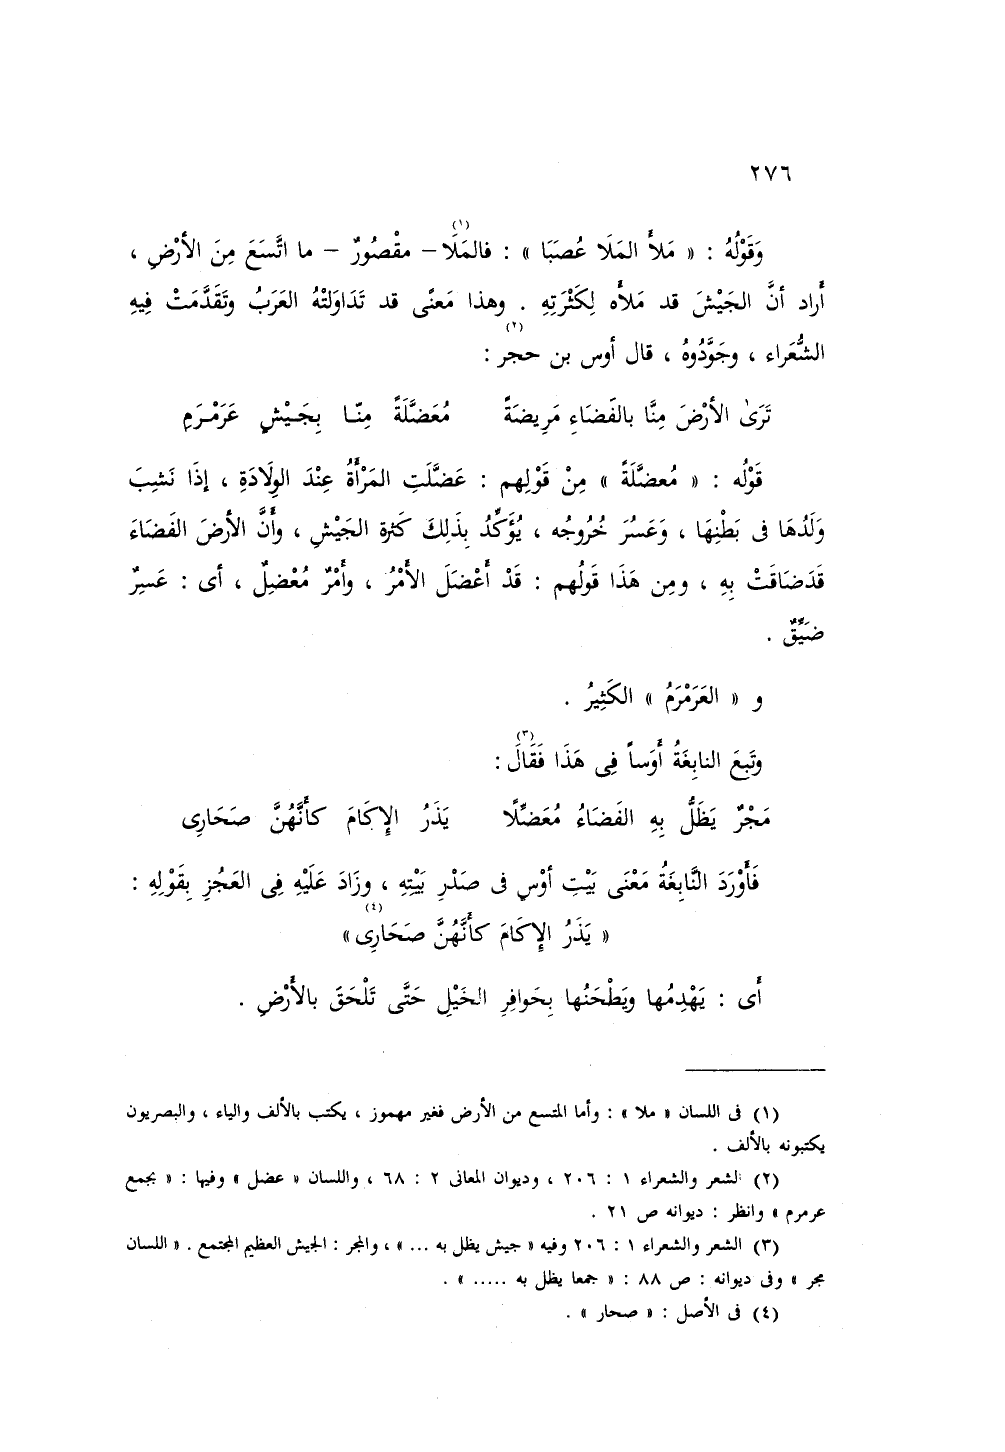 ٢٧٦
وَقَوْلُهُ : « مَلأَ المَلَا عُصَبَا » : فالمَلَا(١) – مقْصُورٌ – ما اتَّسَعَ مِنَ الأرْضِ ،
أَراد أنَّ الجَيْشَ قد مَلأَه لِكَثْرَتِهِ . وهذا مَعنًى قد تَدَاوَلَتْهُ العَرَبُ وتَقَدَّمَتْ فِيهِ
الشُّعَراء ، وجَوَّدُوهُ ، قال أوس بن حجر(٢) :
تَرَىٰ الأرْضَ مِنَّا بالفَضَاءِ مَرِيضَةً     مُعَضَّلَةً مِنّـا بِجَـيْشٍ عَرَمْـرَمِ
قَوْلُه : « مُعضَّلَةً » مِنْ قَوْلِهم : عَضَّلَتِ المَرْأَةُ عِنْدَ الوِلَادَةِ ، إذَا نَشِبَ
وَلَدُهَا فى بَطْنِهَا ، وَعَسُرَ خُرُوجُه ، يُؤَكِّدُ بِذَلِكَ كَثرة الجَيْشِ ، وأَنَّ الأرضَ الفَضَاءَ
قَدضَاقَتْ بِهِ ، ومِن هَذَا قَولُهم : قَدْ أَعْضَلَ الأَمْرُ ، وأَمْرٌ مُعْضِلٌ ، أى : عَسِرٌ
ضَيِّقٌ .
و « العَرَمْرَمُ » الكَثِيرُ .
وتَبِعَ النابِغَةُ أَوَساً فِى هَذَا فَقَالَ(٣) :
مَجْرٌ يَظَلُّ بِهِ الفَضَاءُ مُعَضِّلًا     يَذَرُ الإِكَامَ كأَنَّهُنَّ صَحَارِى
فَأَوْرَدَ النَّابِغَةُ مَعْنَى بَيْتِ أوْسٍ فى صَدْرِ بَيْتِهِ ، وزَادَ عَلَيْهِ فِى العَجُزِ بِقَوْلِهِ :
« يَذَرُ الإِكَامَ كأَنَّهُنَّ صَحَارِى(٤) »
أَى : يَهْدِمُها ويَطْحَنُها بِحَوافِرِ الخَيْلِ حَتَّى تَلْحَقَ بالأَرْضِ .
(١) فى اللسان « ملا » : وأما المتسع من الأرض فغير مهموز ، يكتب بالألف والياء ، والبصريون
يكتبونه بالألف .
(٢) الشعر والشعراء ١ : ٢٠٦ ، وديوان المعانى ٢ : ٦٨ ، واللسان « عضل » وفيها : « بجمع
عرمرم » وانظر : ديوانه ص ٢١ .
(٣) الشعر والشعراء ١ : ٢٠٦ وفيه « جيش يظل به ... » ، والمجر : الجيش العظيم المجتمع . « اللسان
مجر » وفى ديوانه : ص ٨٨ : « جمعا يظل به ..... » .
(٤) فى الأصل : « صحار » .